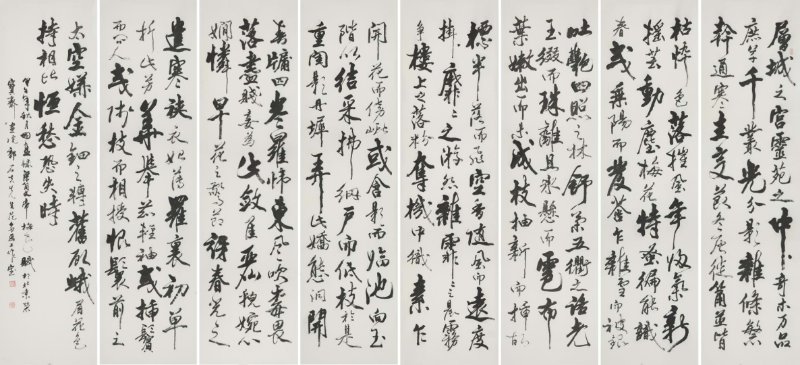 層城之宮靈苑之中奇木万品
庶草千叢光分影雜條繁
幹通寒圭变節冬灰徙筩並皆
枯悴色落摧風年歸氣新
摇芸動塵梅花特早偏能識
春或乘陽而發金乍雜雪而被銀
吐艷四照之林舒榮五衢之路
玉綴而珠離且冰懸而雹布
葉嫩出而未成枝抽新而插故
標半落而飛空香隨風而遠度
掛靡靡之游絲雜霏霏之晨霧
争樓上之落粉奪機中織素乍
開花而傍巘或含影而临池向玉
階以結采拂網户而低枝於是
重閨影丹墀弄此嬌態洞開
春牖四卷羅帷東風吹梅畏
落盡賤妾為此斂佳麗貌婉心
嫻憐早花之驚節訝春光之
遣寒裌衣始薄羅裏初單
折此芳華舉茲輕袖或插鬢
而問人或殘枝而相授恨鬟前之
太空嫌金鈿之轉舊顧蛾眉花色
持相比恒愁恐失時